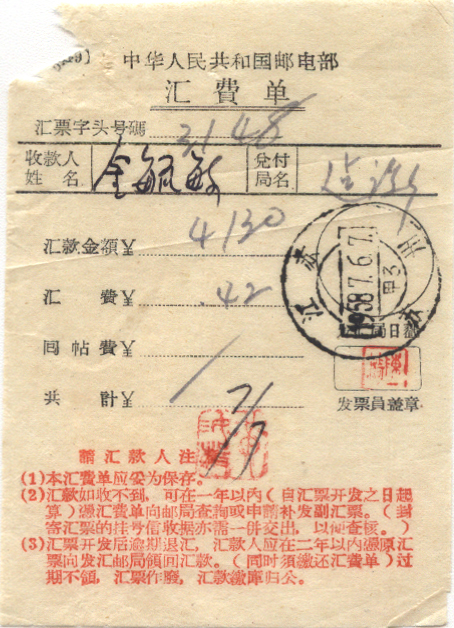 中华人民共和国邮电部
汇費单
汇票字头号碼 3148
收款人姓名 金毓敏 兑付局名
汇款金額￥ 4130
汇費￥ .42
回帖費￥
共計￥
江苏
1958.7.6.7
甲3
局日戳
发票員盖章
7/7
請汇款人注
(1)本汇費单应妥为保存。
(2)汇款如收不到，可在一年以内（自汇票开发之日起
算）憑汇費单向邮局查詢或申請补发副汇票。（封
寄汇票的挂号信收据亦需一併交出，以便查核。）
(3)汇票开发后逾期退汇，汇款人应在二年以内憑原汇
票向发汇邮局領回汇款。（同时須繳还汇費单）过
期不領，汇票作廢，汇款繳庫归公。